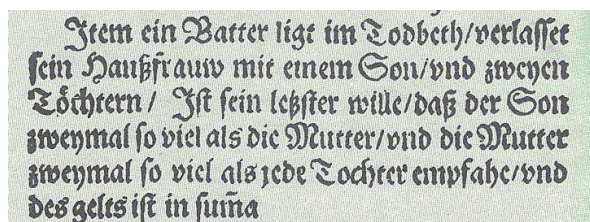 Item ein Vatter ligt im Todbeth/verlasset
sein Haußfrauw mit einem Son/vnd zweyen
Töchtern / Ist sein letzster wille/daß der Son
zweymal so viel als die Mutter/vnd die Mutter
zweymal so viel als jede Tochter empfahe/vnd
des gelts ist in sum̃a